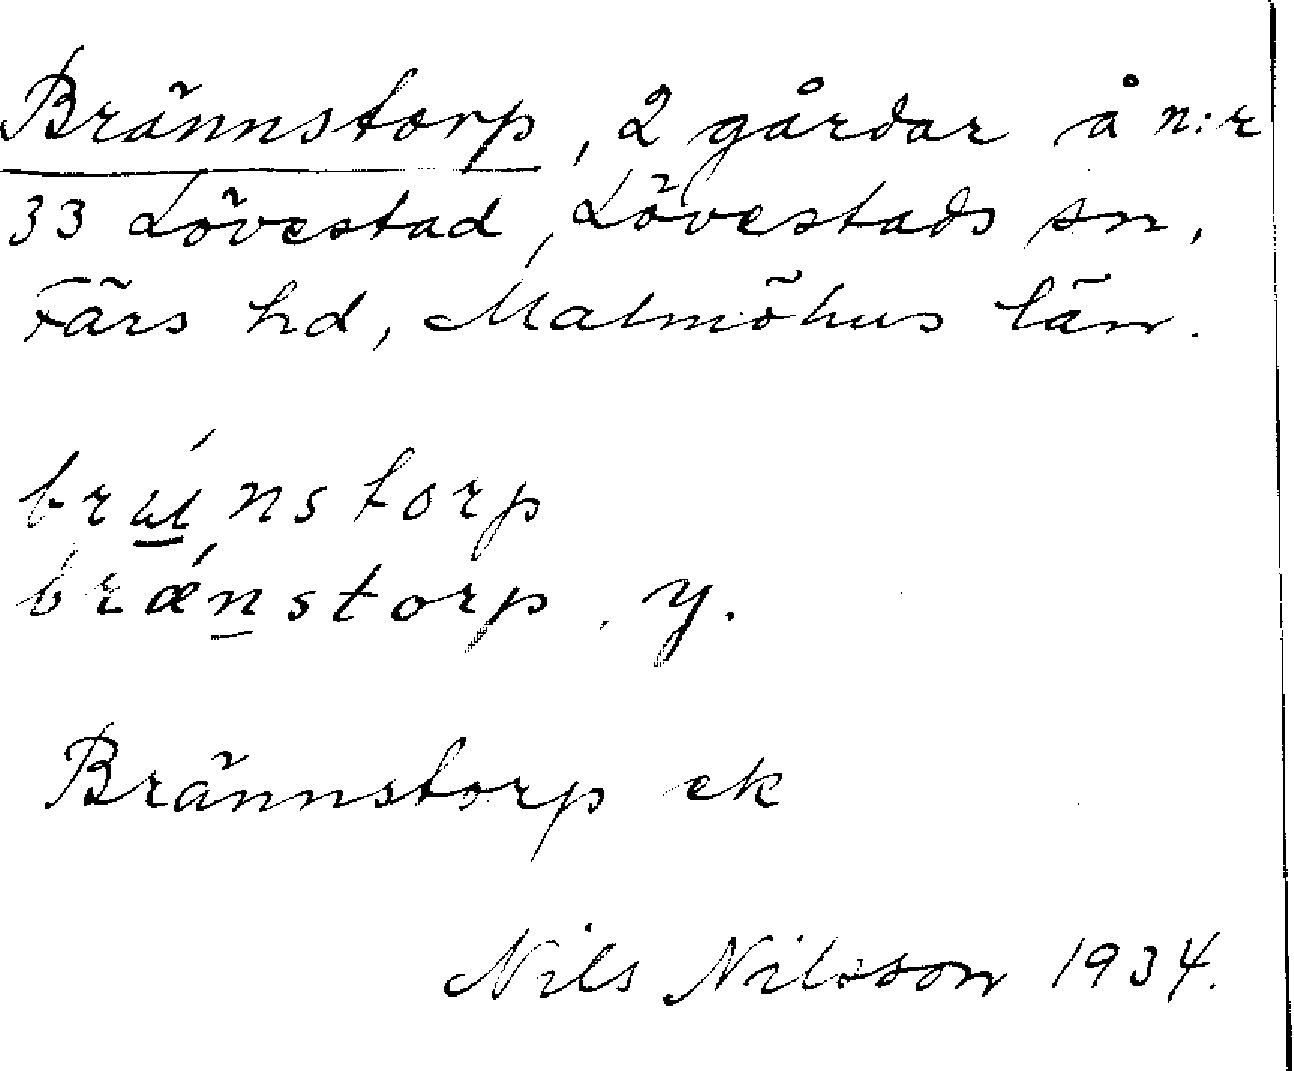 Brännstorp, 2 gårdar å n:r
33 Lövestad, Lövestads sn,
Färs hd, Malmöhus län.
bránstorp
brǽnstorp . y.
Brännstorp ek
Nils Nilsson 1934.